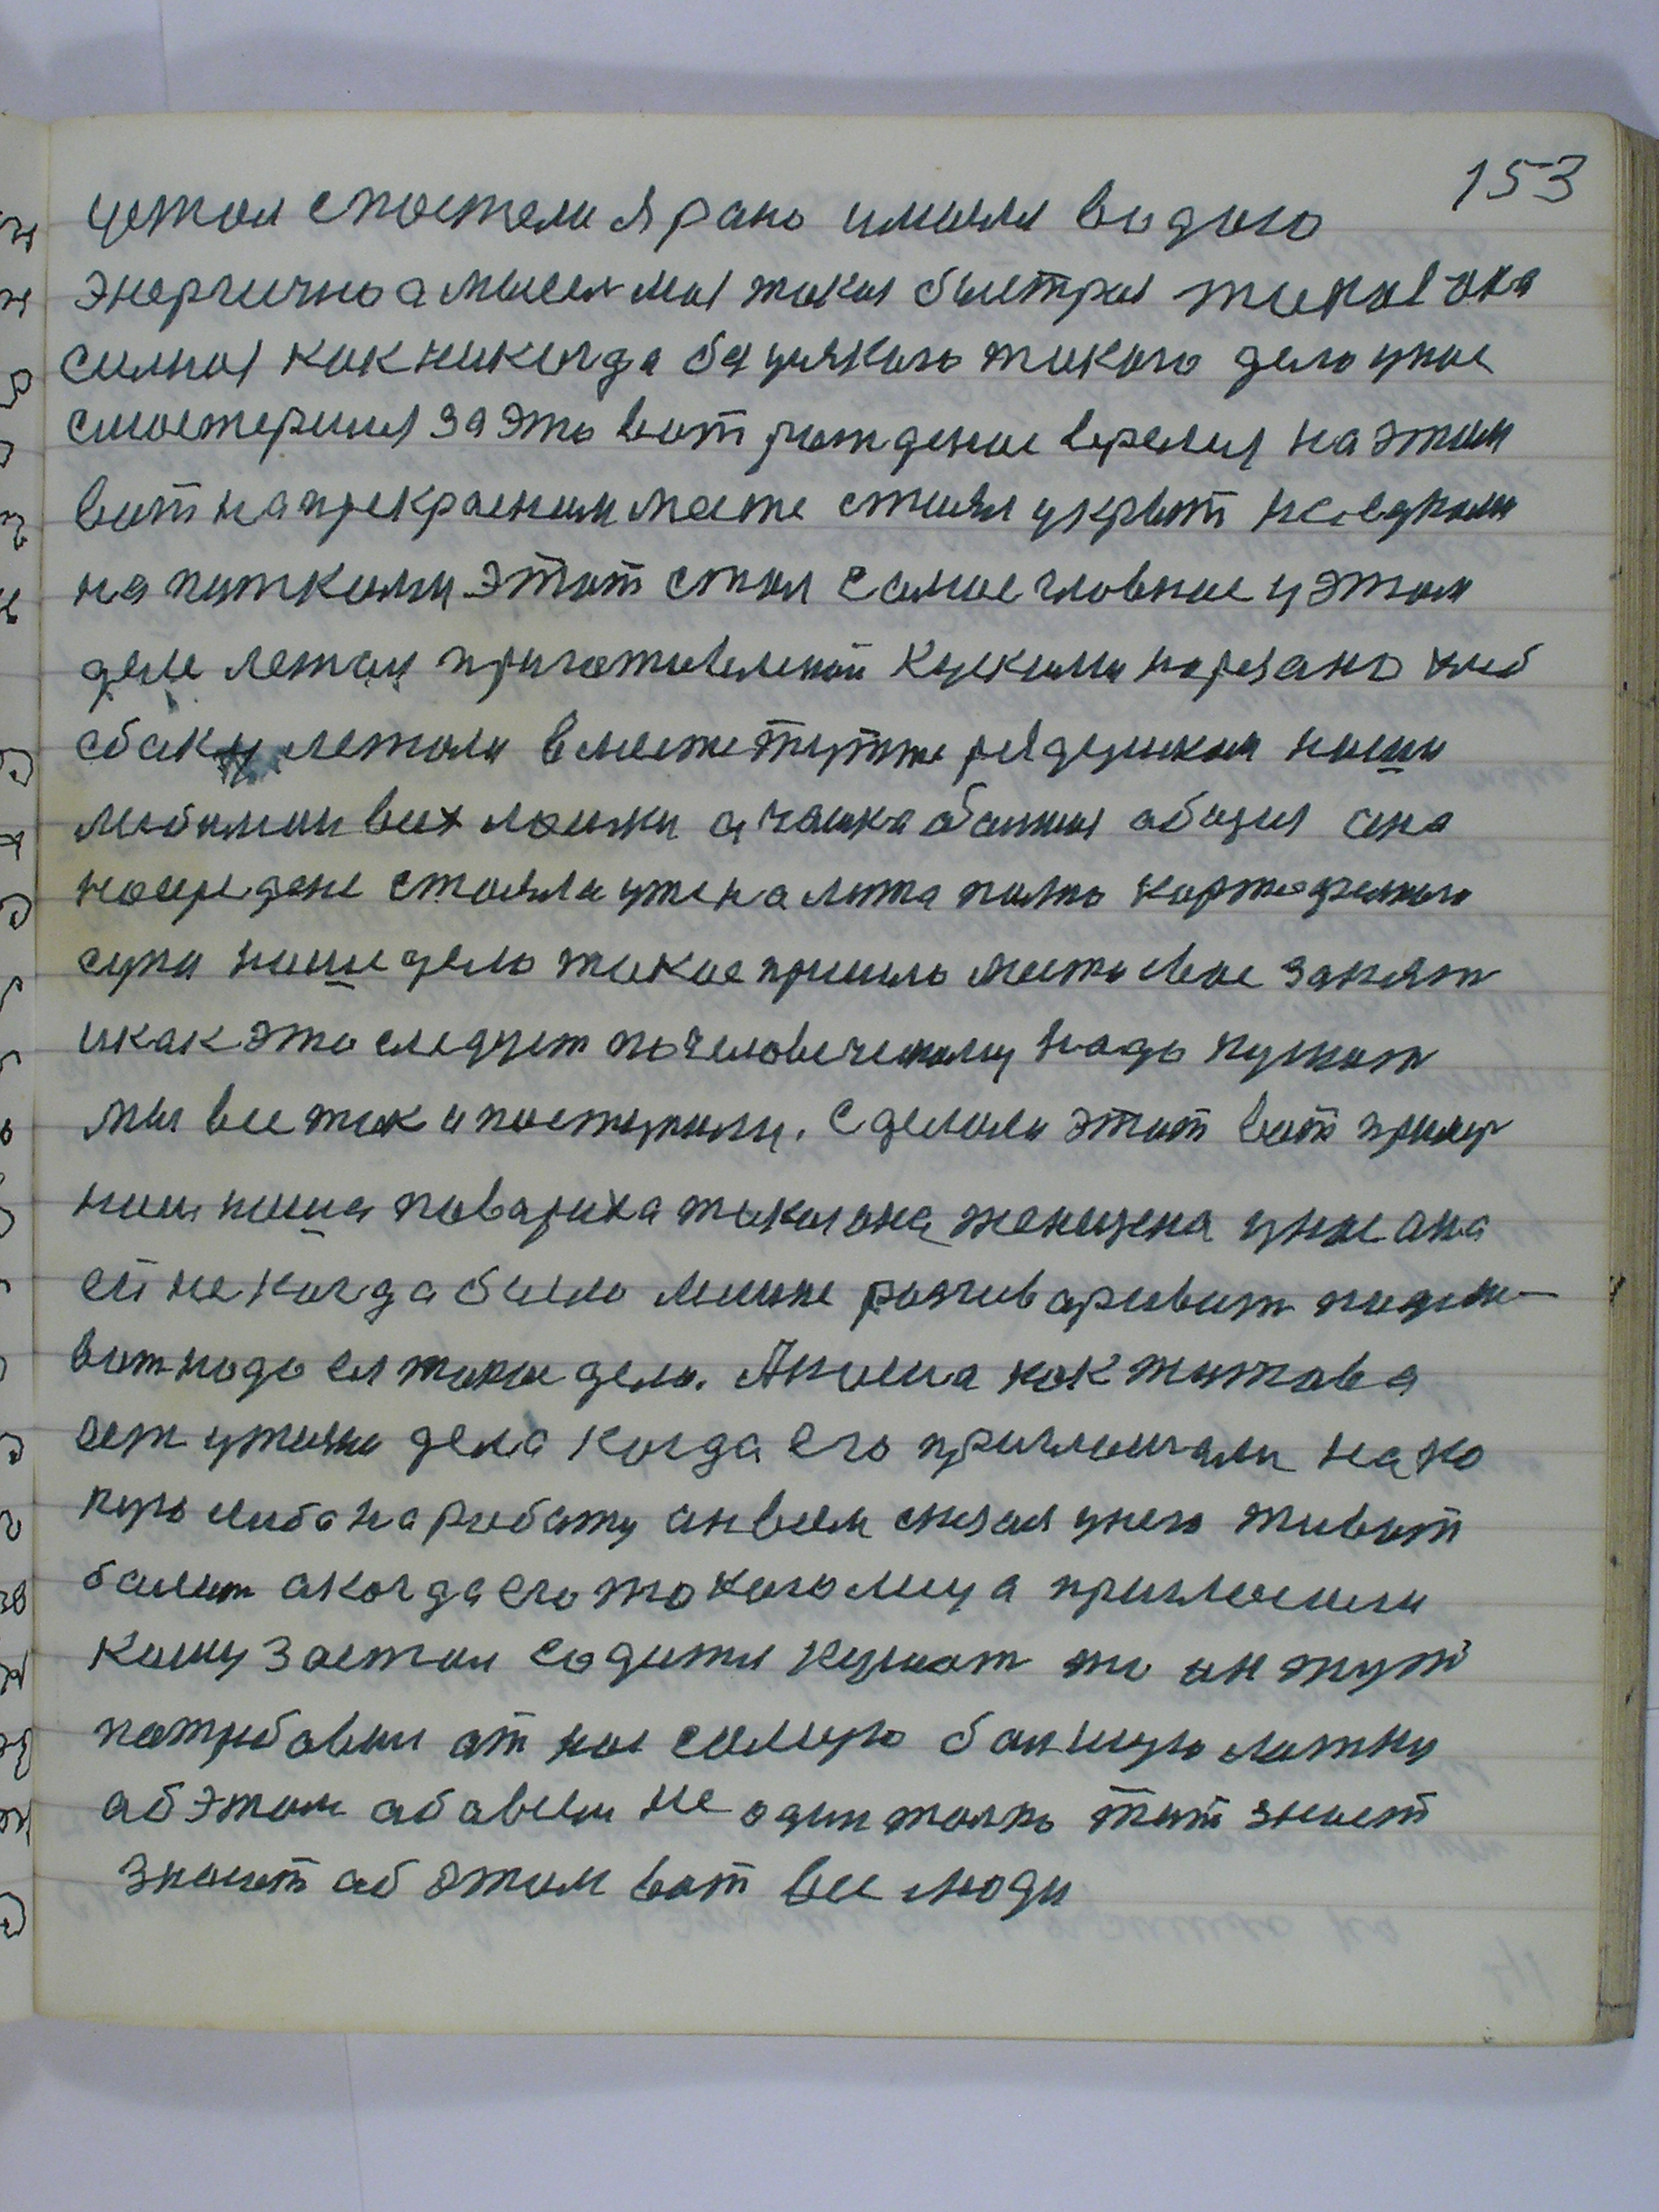 153
устал с постели я рано и мылся водою
энергично а мысел моя такая быстрая типов ока
силноя как никогда без усякого такого дело у нас
смастерился за это вот рождение время на этом
вот на прекрасним месте стоял укрыт
на питками этот стол самое главное у этом
деле лежал приготовленай кусками нарезано хлеб
сбаку лежали вместе тутже рядушкам наши
любимаи всех ложки а чашка большая абщия она
насиредене стояла уже налита полно картофельного
супа наше дело такое пришло место свое занят
и как это следует по человеческому надо кушат
мы все так и поступили. Сделали этот вот пример
наша повариха такая она женщена у нас она
ей не когда было лишне разговариват
вот надо ей такое дело. Алеша как
дела когда его приглашали на ко
либо на работу он всем сказал у него живот
балит а когда его такого приглашили
кашу за стол садится кушат то он тут
потребавал от нас самую большую ложку
аб этом аба всем не один толко тут знает
знают аб этом вот все люди